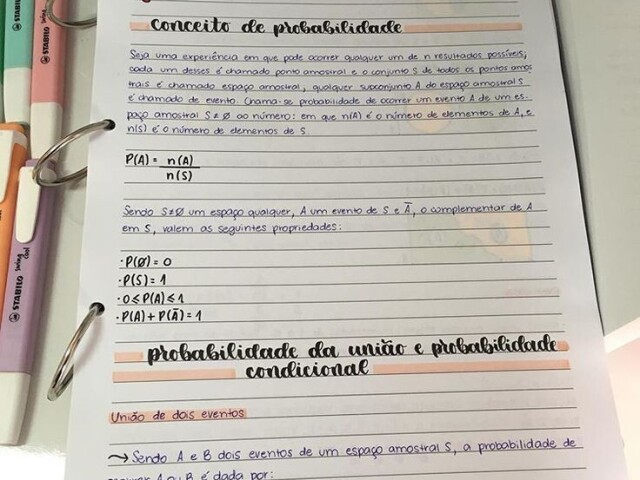 conceito de probabilidade
Seja uma experiência em que pode ocorrer qualquer um de n resultados possíveis;
cada um desses é chamado ponto amostral e o conjunto S de todos os pontos amos
trais é chamado espaço amostral, qualquer subconjunto A do espaço amostral S
é chamado de evento. Chama-se probabilidade de ocorrer um evento A de um es-
paço amostral S≠Ø ao número: em que n(A) é o número de elementos de A, e
n(S) é o número de elementos de S.
P(A) = n(A)
n(S)
Sendo S≠Ø um espaço qualquer, A um evento de S e Ā, o complementar de A
em S, valem as seguintes propriedades:
·P(Ø) = 0
·P(S) = 1
·0 ≤ P(A) ≤ 1
·P(A) + P(Ā) = 1
probabilidade da união e probabilidade
condicional
União de dois eventos
→ Sendo A e B dois eventos de um espaço amostral S, a probabilidade de
A ou B é dada por:
STABILO
STABILO swing
STABILO swing cool